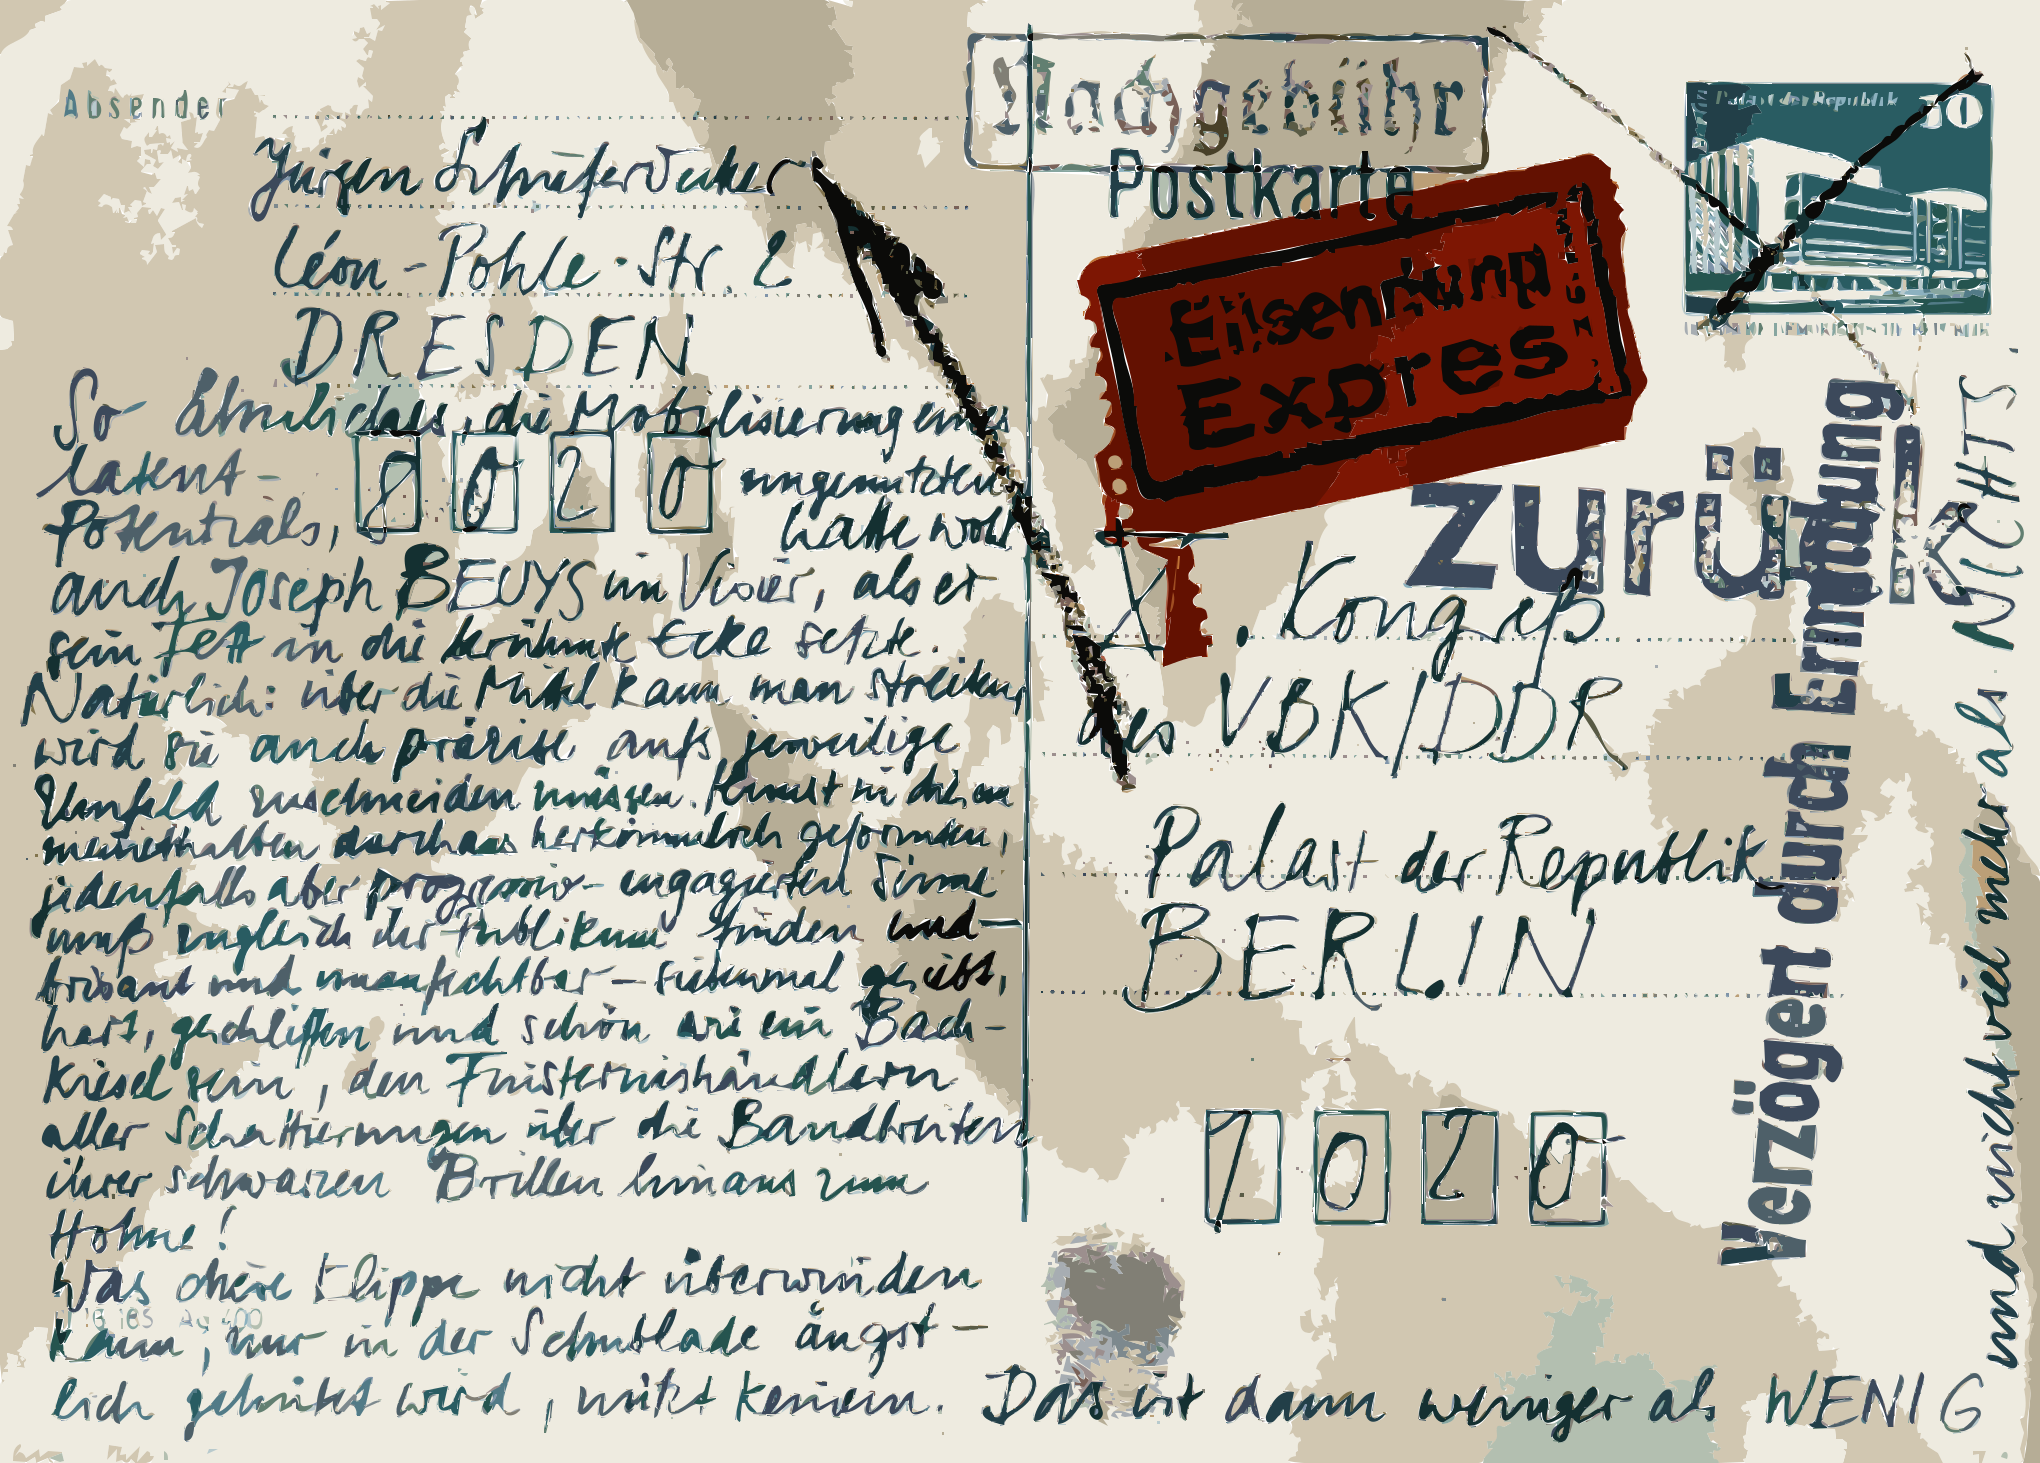 Absender
Jürgen Schäferdecker
Léon-Pohle-Str. 2
DRESDEN
8020
So Ähnliches, die Mobilisierung eines
latent - ungenutzten
Potentials, hatte wohl
auch Joseph BEUYS im Visier, als er
sein Fett in die berühmte Ecke setzte.
Natürlich: über die Mittel kann man streiten,
wird sie auch präzise aufs jeweilige
Umfeld zuschneiden müssen. Kunst in diesem
meinethalben durchaus herkömmlich geformten,
jedenfalls aber progressiv-engagierten Sinne
muß zugleich ihr Publikum finden und
brisant und unanfechtbar - siebenmal gesiebt,
hart, geschliffen und schön wie ein Bach-
Kiesel sein, den Finsternishändlern
aller Schattierungen über die Bandbreiten
ihrer schwarzen Brillen hinaus zum
Hohne!
Was diese Klippe nicht überwinden
kann, nur in der Schublade ängst-
lich gehütet wird, nützt keinem. Das ist dann weniger als WENIG
und nicht viel mehr als NICHTS
Nachgebühr
Postkarte
Palast der Republik
10
Eilsendung
Expres
zurück
X. Kongreß
des VBK/DDR
Palast der Republik
BERLIN
1020
Verzögert durch Ermittlung